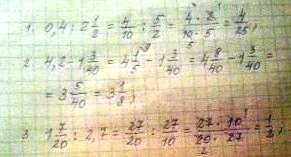 1. 0,4 : 2 1/2 = 4/10 : 5/2 = 4 · 2/10 · 5 = 4/25,
2. 4,2 - 1 3/40 = 4 1/5 - 1 3/40 = 4 8/40 - 1 3/40 =
= 3 5/40 = 3 1/8,
3. 1 7/20 : 2,7 = 27/20 : 27/10 = 27 · 10/20 · 27 = 1/2,